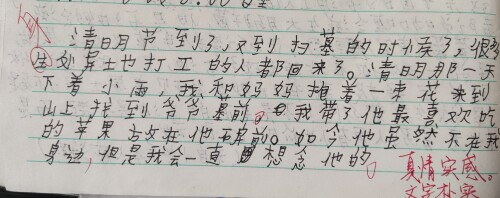 清明节到了,又到扫墓的时候了,很多
在外地打工的人都回来了。清明那一天
下着小雨,我和妈妈抱着一束花来到
山上找到爷爷墓前。我带了他最喜欢吃
的苹果放在他墓前。如今他虽然不在我
身边,但是我会一直想念他的。
真情实感。
文字朴实